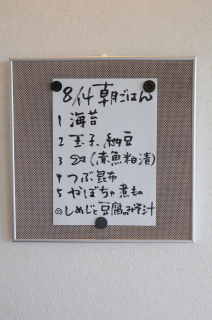 8/14 朝ごはん
1 海苔
2 玉子、納豆
3 (赤魚粕漬)
4 つぶ昆布
5 かぼちゃ煮もの
◎しめじと豆腐のみそ汁